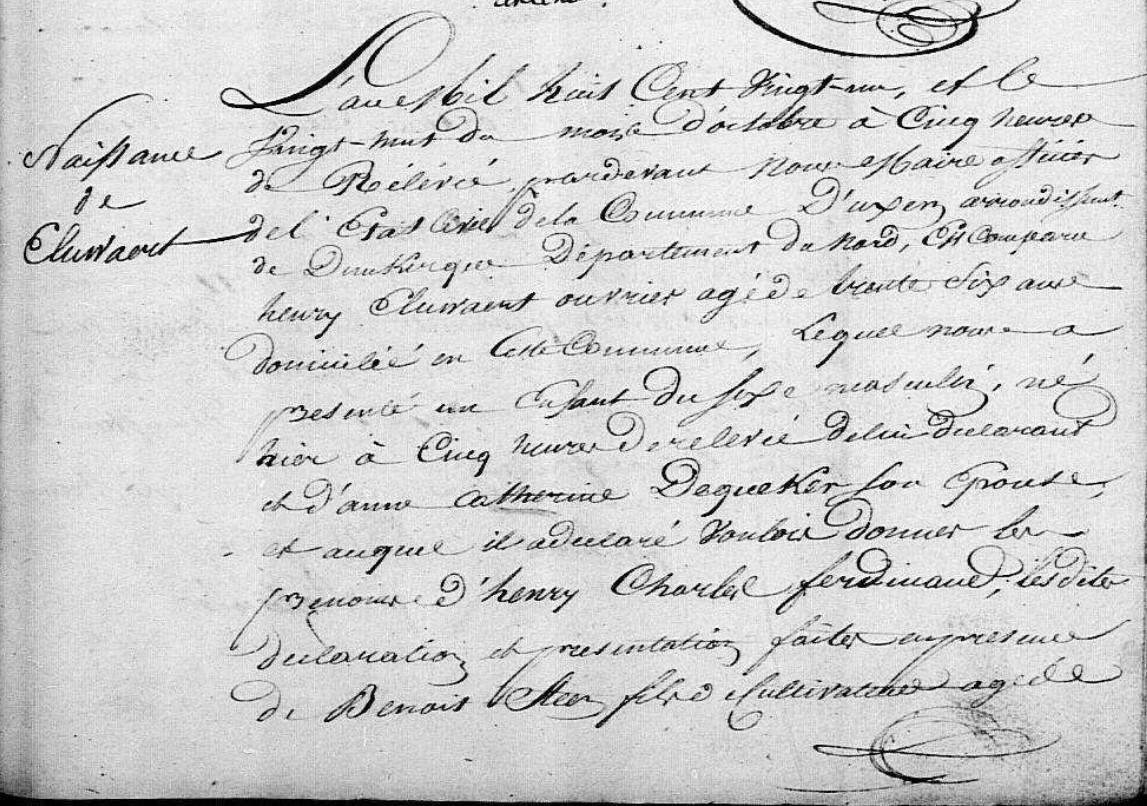 Naissance
de
Eluwaert
L'an Mil huit Cent Vingt-un, et le
Vingt-huit du mois d'octobre à Cinq heures
de Rélévié, pardevant nous Maire officier
del' Etat Civil dela Commune D'uxem, arrondissent.
de Dunkerque Département du Nord, Est Comparu
henry Eluwaert ouvrier agé de trente Six ans
domicilié en Cette Commune, Lequel nous a
presenté un Enfant du sexe masculin, né
hier à Cinq heures de relevié de lui declarant
et d'anne Catherine Dequeker son Epouse,
et auquel il a declaré Vouloir donner les
prenoms d'henry Charles ferdinand, lesdites
declaration et presentation faites en presence
de Benoit fils Cultivateur agé de